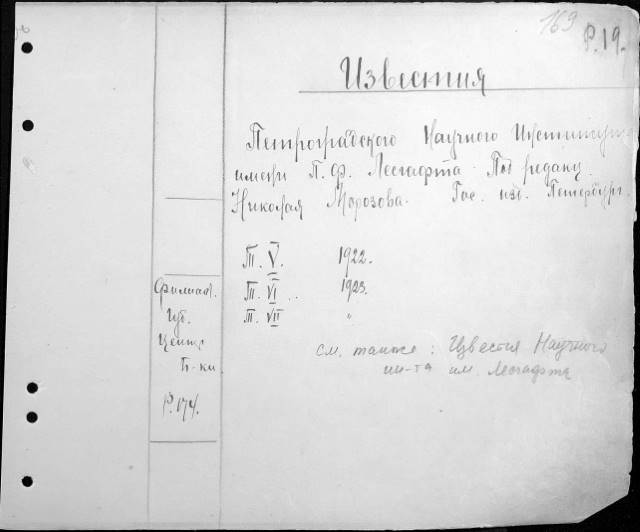 169
Р.19.
Известия
Петроградского Научного Института
имени П. Ф. Лесгафта. Под редакц.
Николая Морозова. Гос. изд. Петербург.
Т. V. 1922.
Т. VI .. 1923.
Т. VII "
Филиал.
Губ.
Центр.
Б-ки
Р.174.
см. также: Известия Научного
ин-та им. Лесгафта